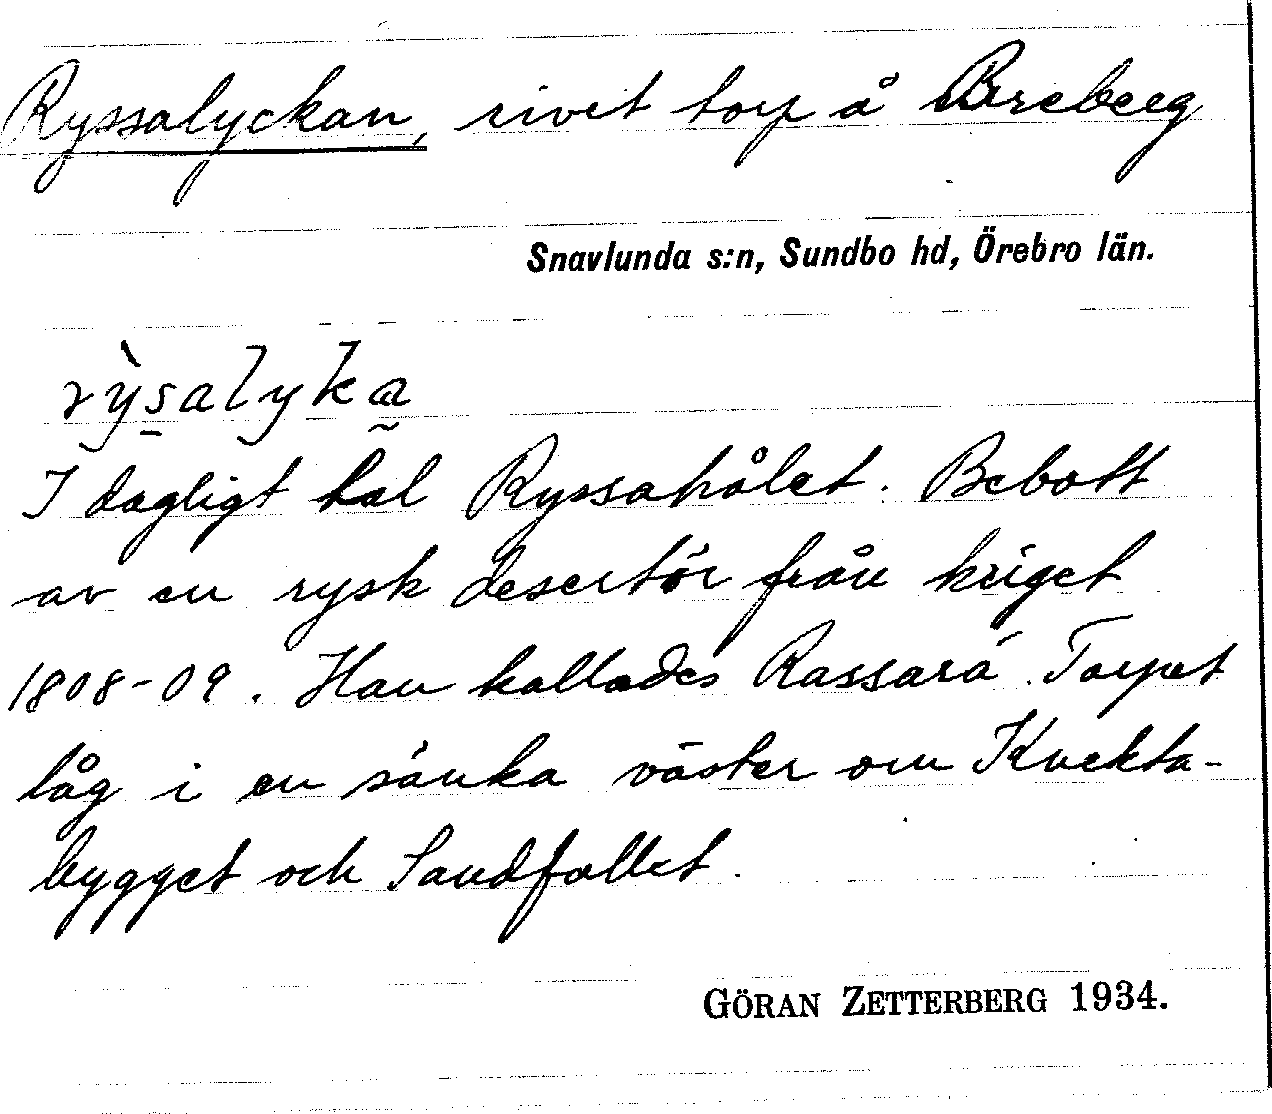 Ryssalyckan, rivet torp å Breberg
Snavlunda s:n, Sundbo hd, Örebro län.
rỳsalyka
I dagligt tal Ryssahålet. Bebott
av en rysk desertör från kriget
1808-09. Han kallades Rassará. Torpet
låg i en sänka väster om Knekta-
bygget och Sandfallet.
GÖRAN ZETTERBERG 1934.